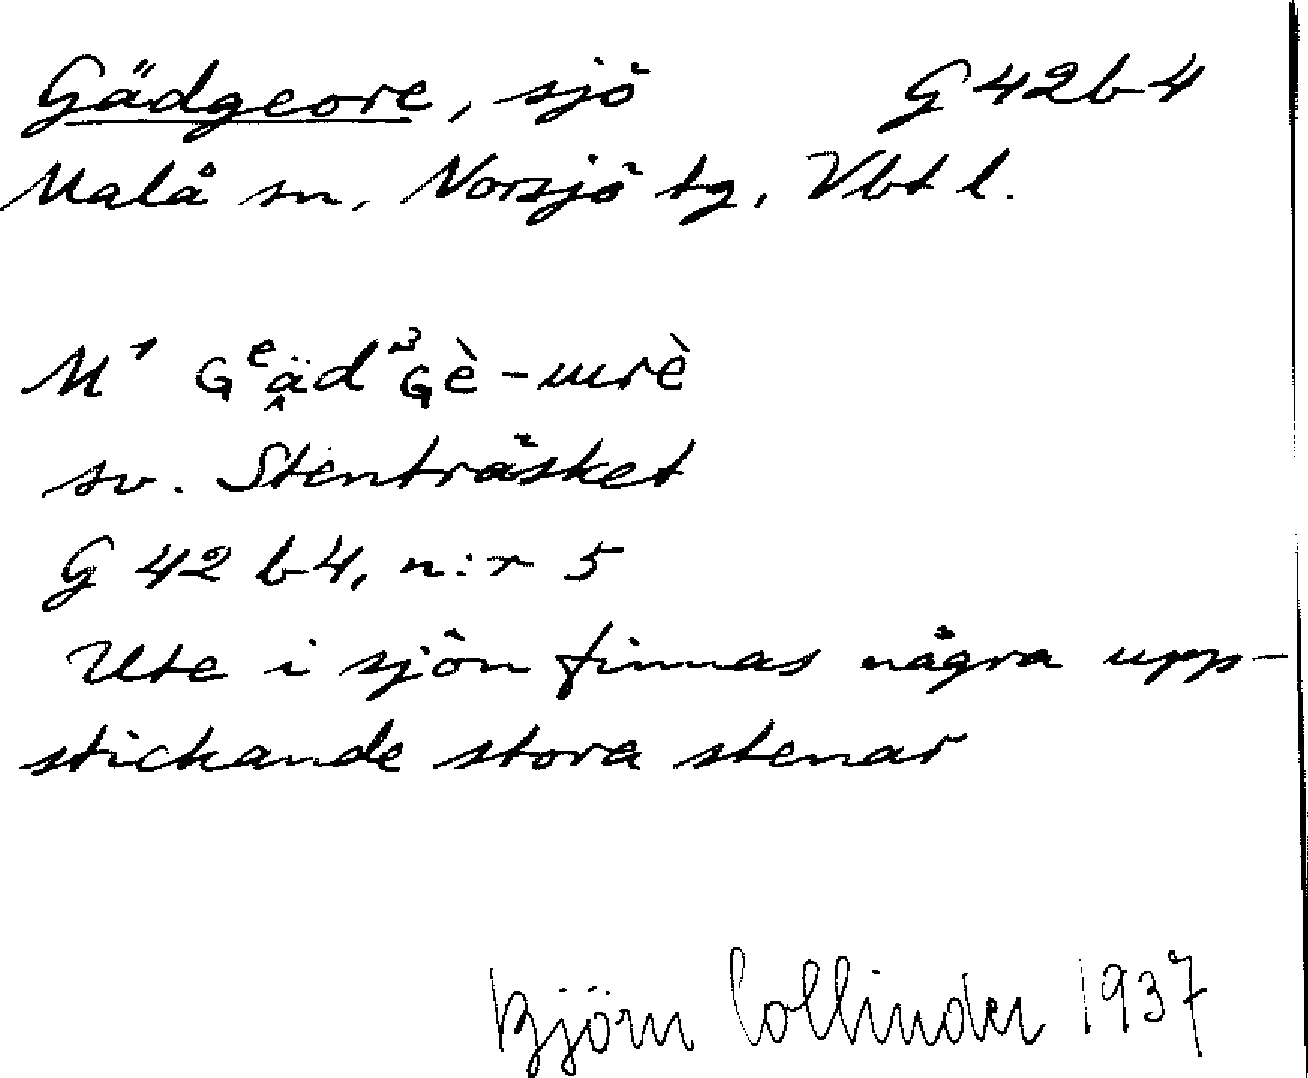 Gädgeore, sjö G42b4
Malå sn, Norsjö tg, Vbt l.
M¹ Gᵉäd³Gè-urè
sv. Stenträsket
G 42 b4, n:r 5
Ute i sjön finnas några upp-
stickande stora stenar
Björn Collinder 1937